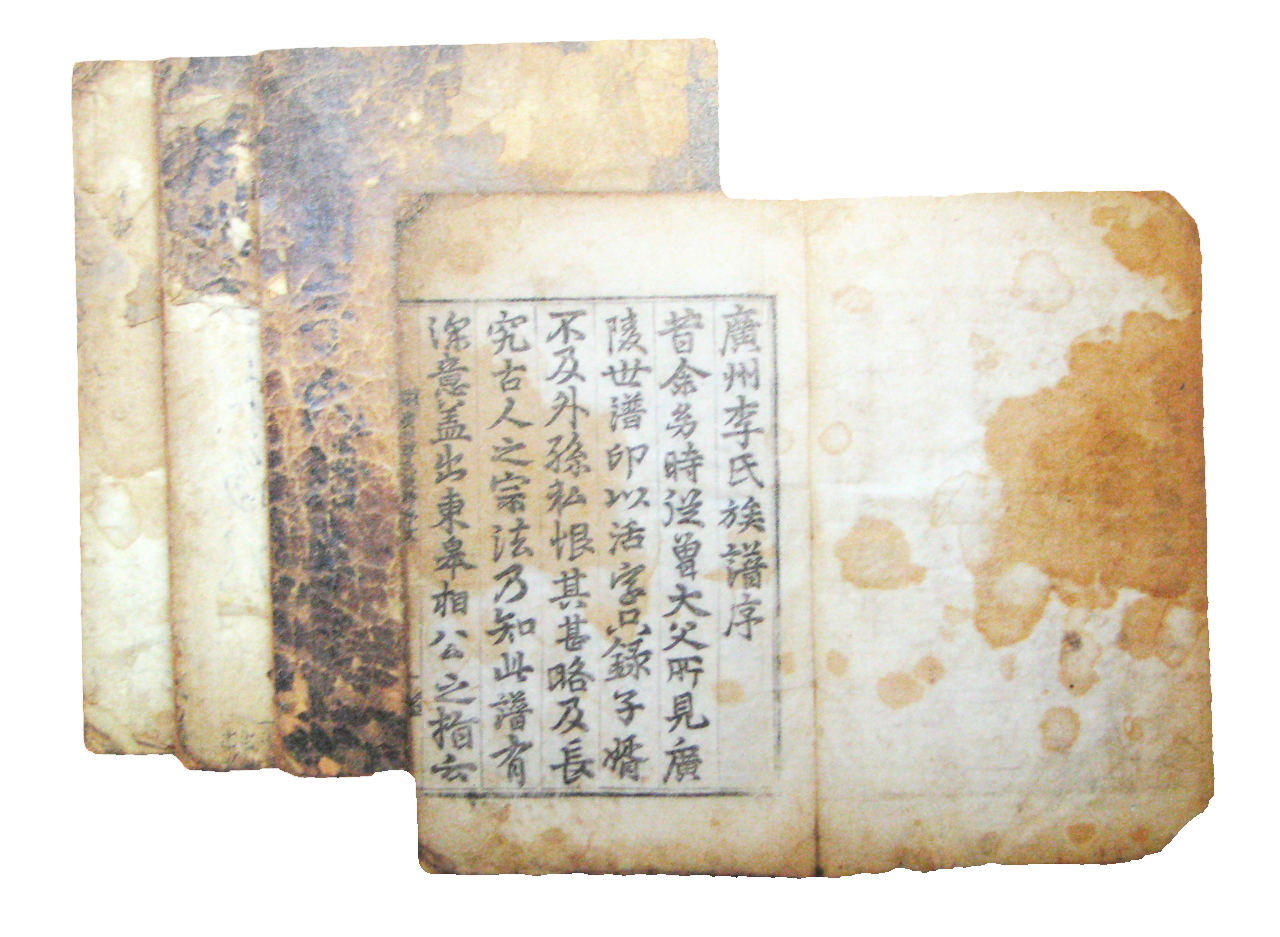 廣州李氏族譜序
昔余㓜時從曾大父所見廣
陵世譜印以活字只録子壻
不及外孫私恨其甚略及長
究古人之宗法乃知此譜有
深意盖出東皐相公之指云